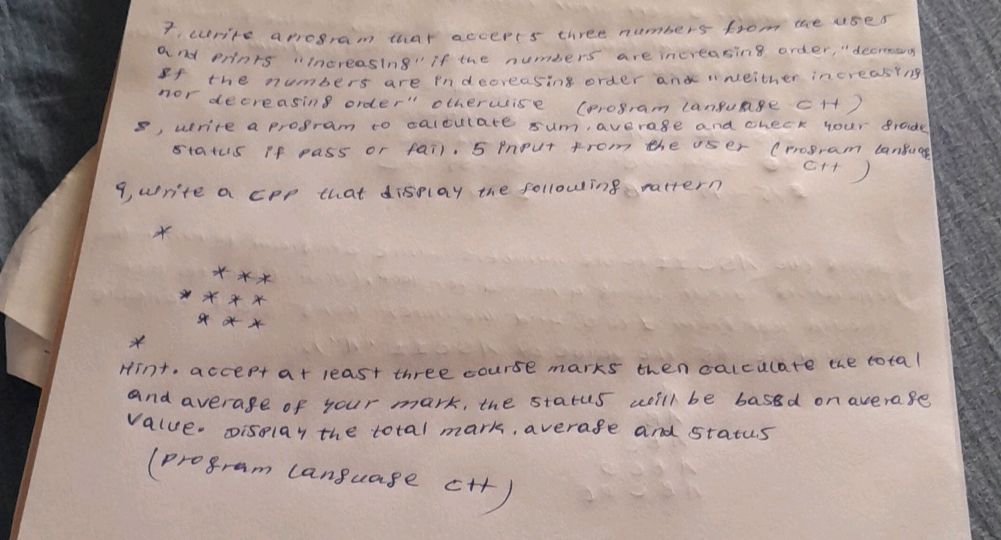 7, write a program that accepts three numbers from the user
and prints "increasing" if the numbers are increasing order, "decreasing
If the numbers are in decreasing order and "neither increasing
nor decreasing order" otherwise (program language C++)
8, write a program to calculate sum, average and check your grade
status if pass or fail. 5 input from the user (program language
C++)
9, write a CPP that display the following pattern
*
* * *
* * * *
* * *
*
Hint. accept at least three course marks then calculate the total
and average of your mark, the status will be based on average
value. Display the total mark, average and status
(program language C++)